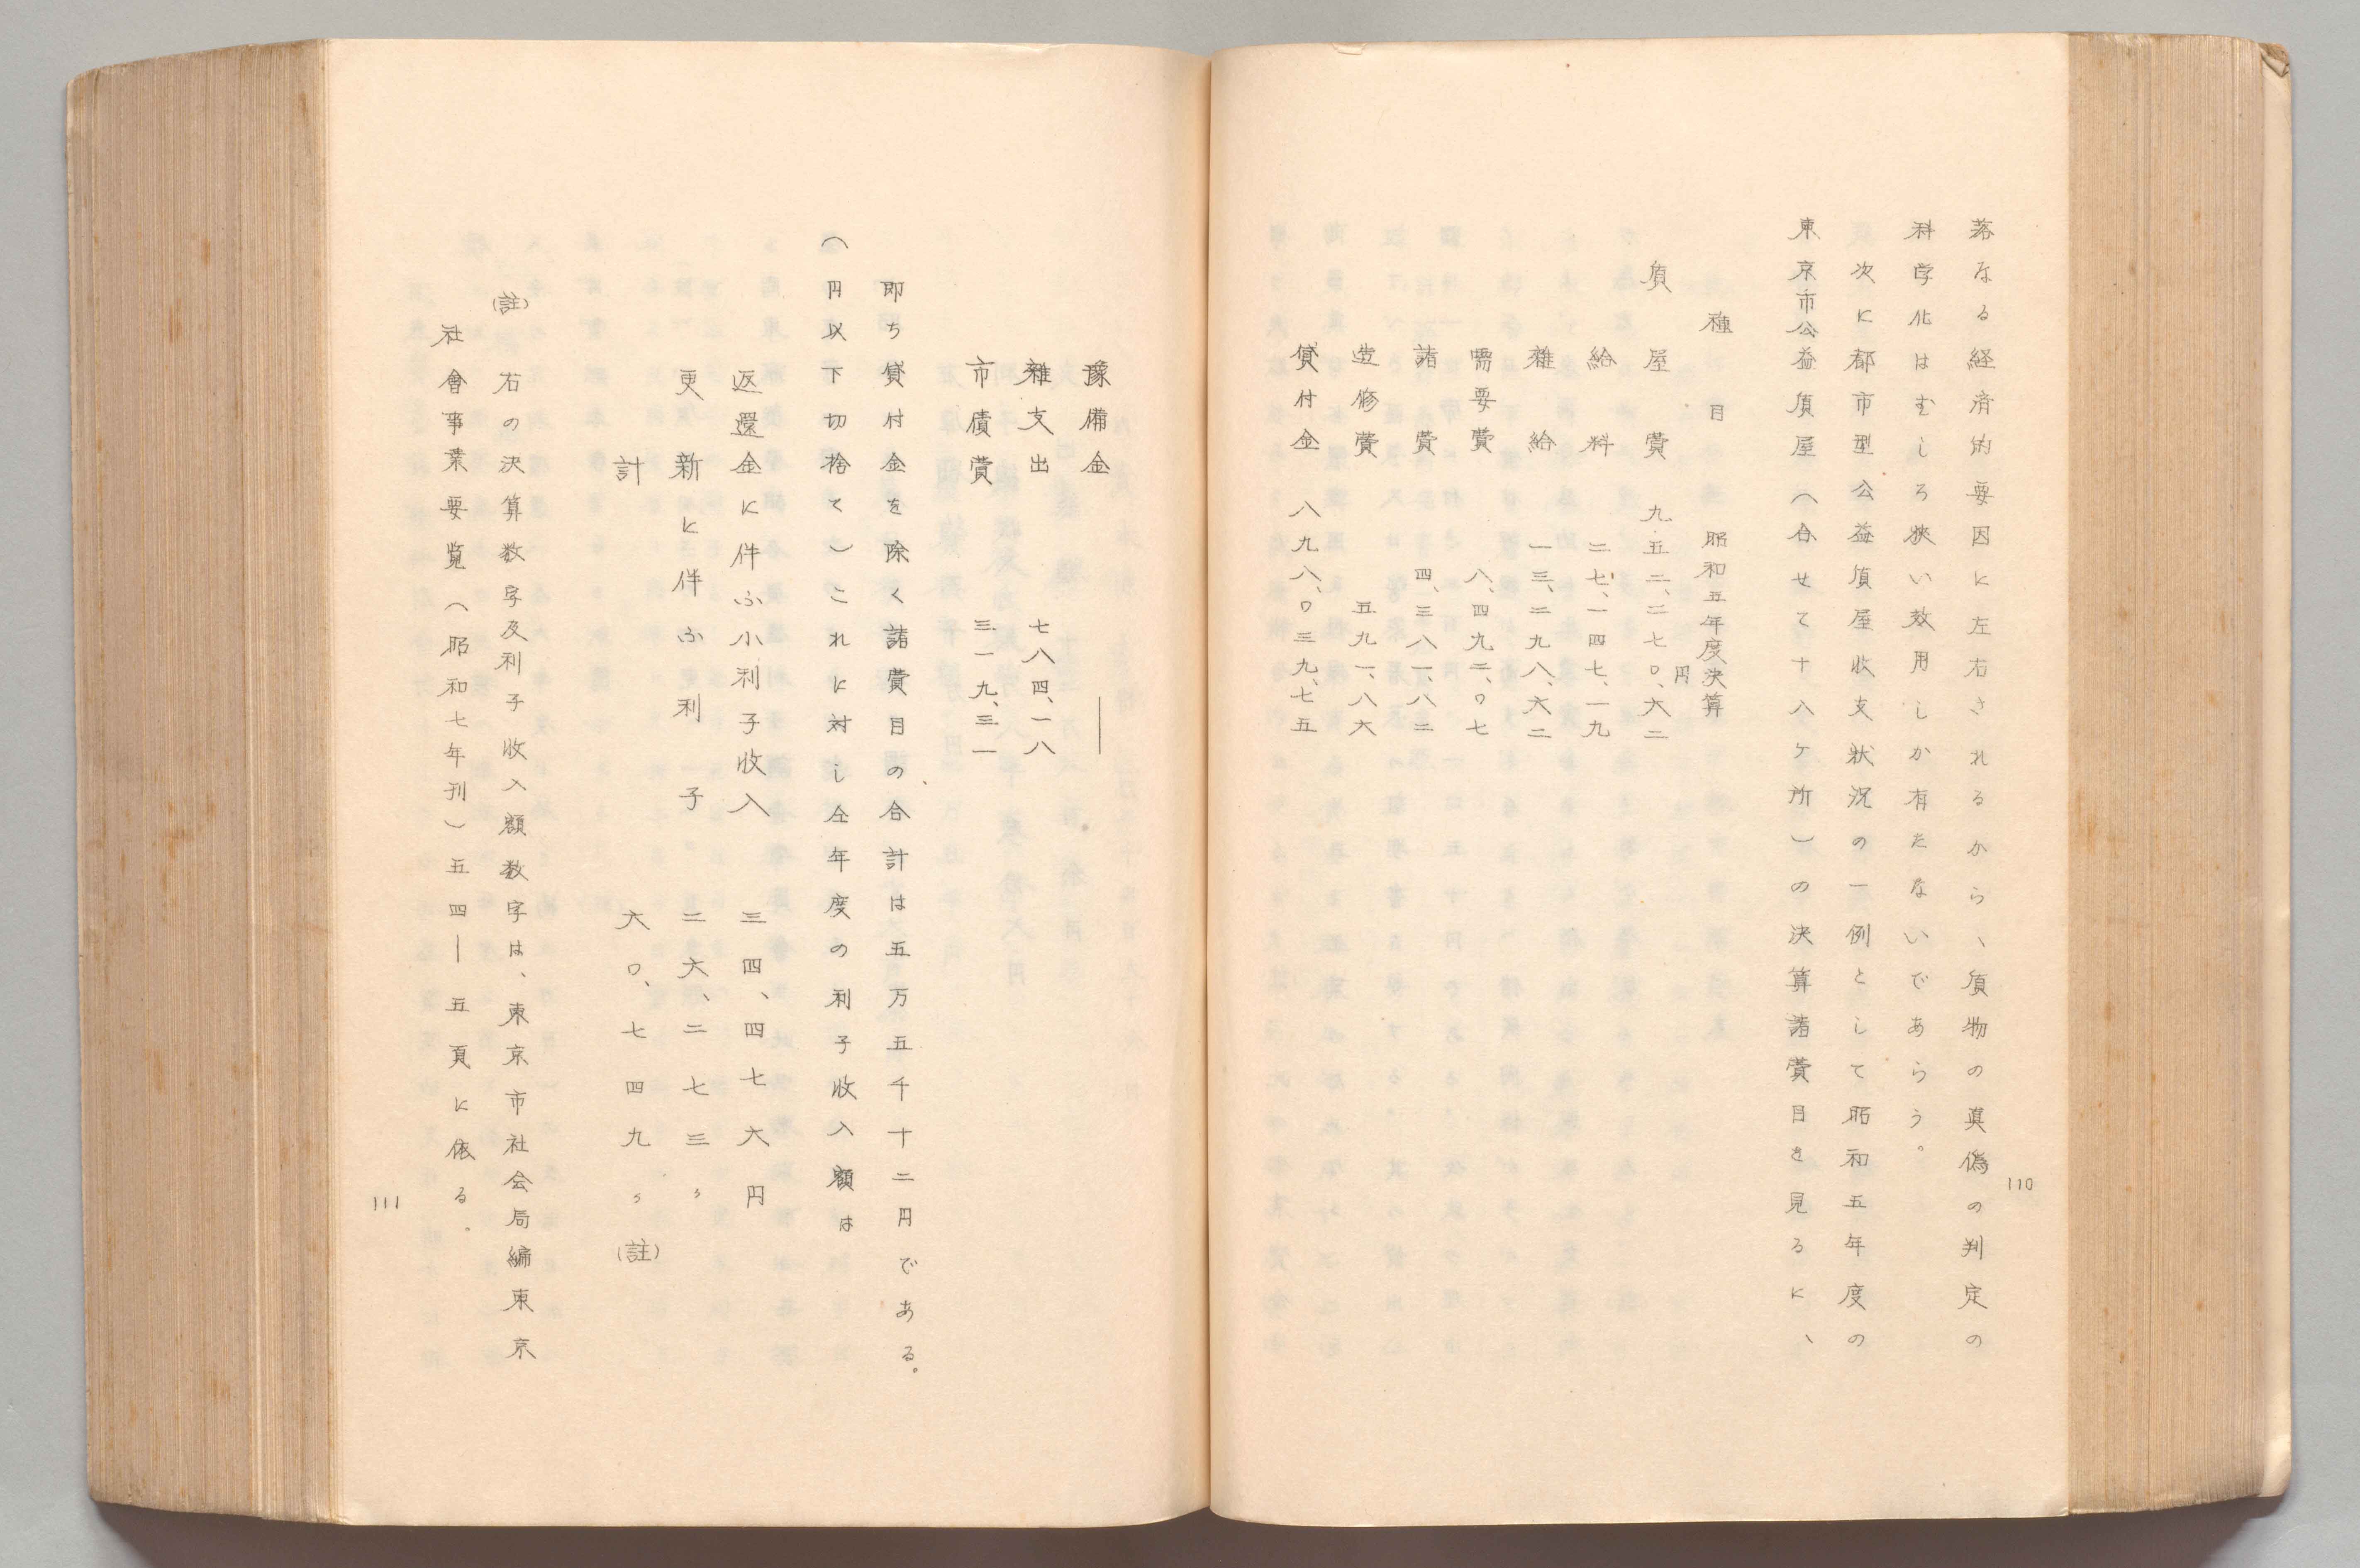 落なる経済的要因に左右されるから、質物の真偽の判定の
科学化はむしろ狭い効用しか有たないであらう。
次に都市型公益質屋收支状況の一例として昭和五年度の
東京市公益質屋（合せて十八ケ所）の決算諸費目を見るに、
種目 昭和五年度決算
質屋費 九五二、二七〇、六二円
給料 二七、一四七、一九
雑給 一三、二九八、六二
需要費 八、四九二、〇七
諸費 四、三八一、八二
造修費 五九一、八六
貸付金 八九八、〇三九、七五
110
豫備金 ——
雑支出 七八四、一八
市債費 三一九、三一
即ち貸付金を除く諸費目の、合計は五万五千十二円である。
（円以下切捨て）これに対し仝年度の利子收入額は
返還金に伴ふ小利子收入 三四、四七六円
更新に伴ふ利子 二六、二七三〃
計 六〇、七四九〃（註）
（註）右の決算数字及利子收入額数字は、東京市社会局編東京
社會事業要覧（昭和七年刊）五四—五頁に依る。
111